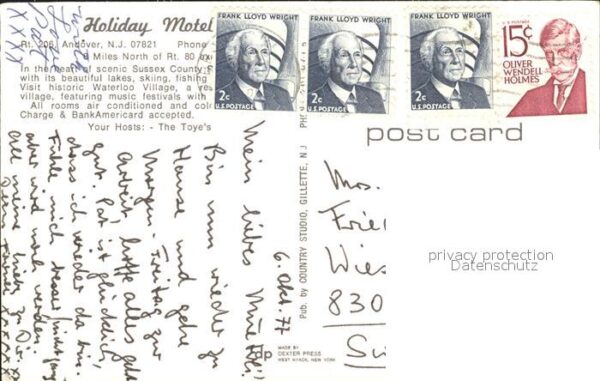 Holiday Motel
Rt. 206, Andover, N.J. 07821 Phone
Miles North of Rt. 80
In the heart of scenic Sussex County
with its beautiful lakes, skiing, fishing
Visit historic Waterloo Village, a
village, featuring music festivals with
All rooms air conditioned and
Charge & BankAmericard accepted.
Your Hosts: - The Toye's
FRANK LLOYD WRIGHT
2c
U.S. POSTAGE
FRANK LLOYD WRIGHT
2c
U.S. POSTAGE
FRANK LLOYD WRIGHT
2c
U.S. POSTAGE
U.S. POSTAGE
15¢
OLIVER
WENDELL
HOLMES
post card
Pub. by COUNTRY STUDIO, GILLETTE, N.J.
dp
MADE BY
DEXTER PRESS
WEST NYACK, NEW YORK
6. Okt. 77
Mein liebes
Bin nun wieder zu
Hause und gehe
Morgen Freitag zur
Arbeit, hoffe alles geht
gut. Pat ist glücklich,
dass ich wieder da bin.
Fühle mich
aber wird noch werden.
All meine Liebe zu Dir
xxxxxx
xxxx
Mrs.
Wies
830
privacy protection
Datenschutz